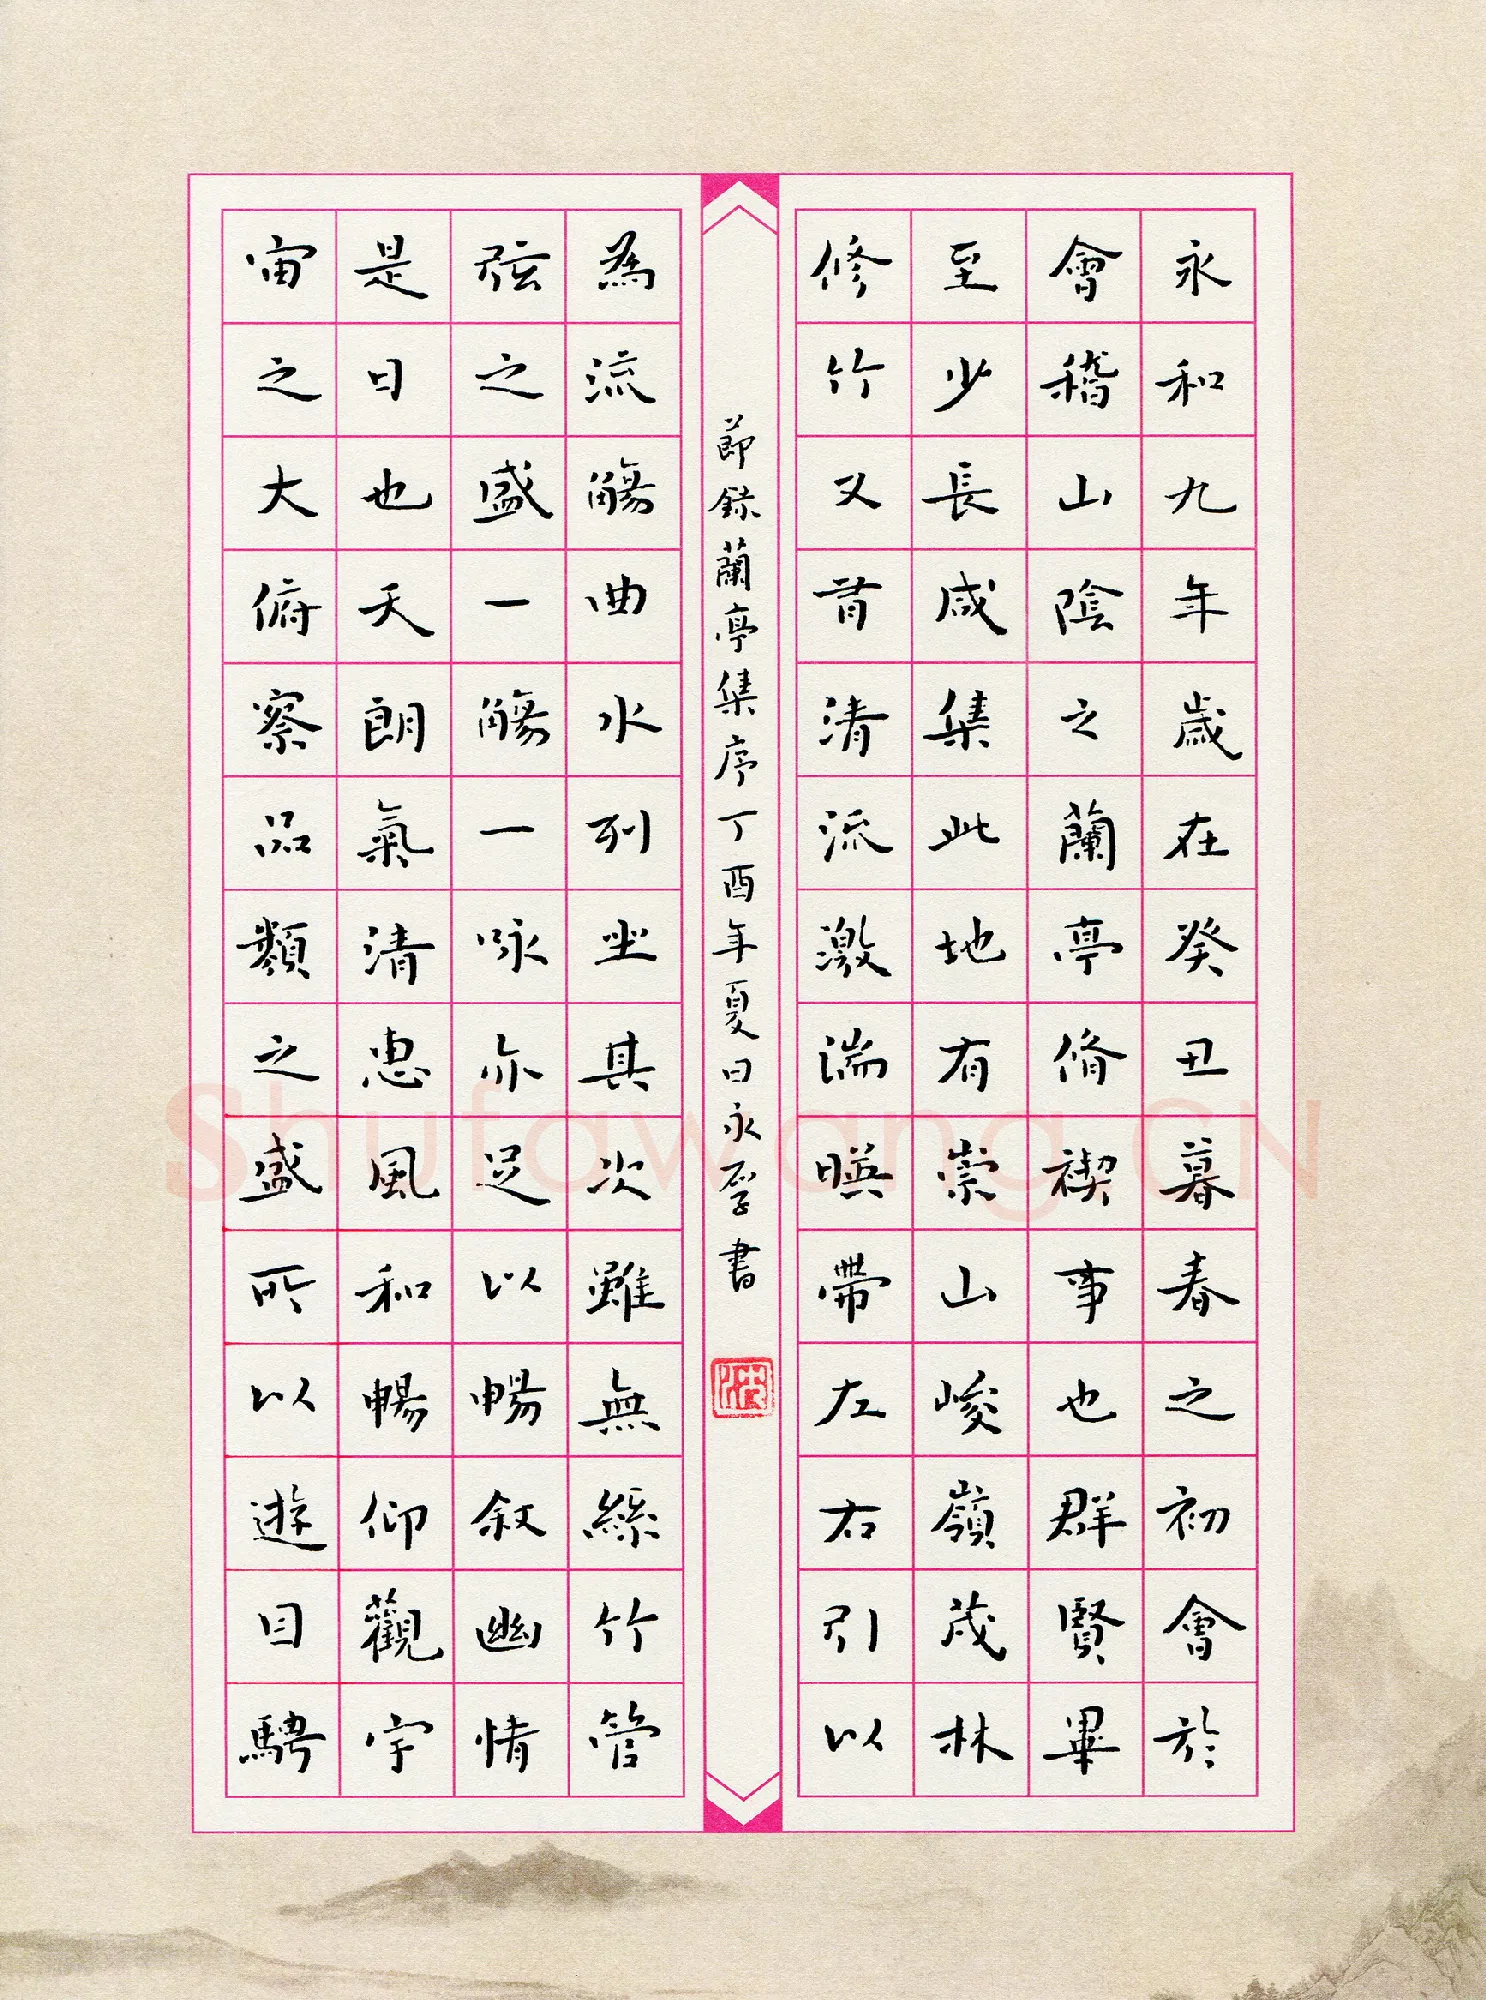 永和九年歲在癸丑暮春之初會於
會稽山陰之蘭亭脩禊事也群賢畢
至少長咸集此地有崇山峻嶺茂林
修竹又有清流激湍暎帶左右引以
節錄蘭亭集序丁酉年夏日永書
為流觴曲水列坐其次雖無絲竹管
弦之盛一觴一咏亦足以暢叙幽情
是日也天朗氣清惠風和暢仰觀宇
宙之大俯察品類之盛所以遊目騁
Shufawang.CN